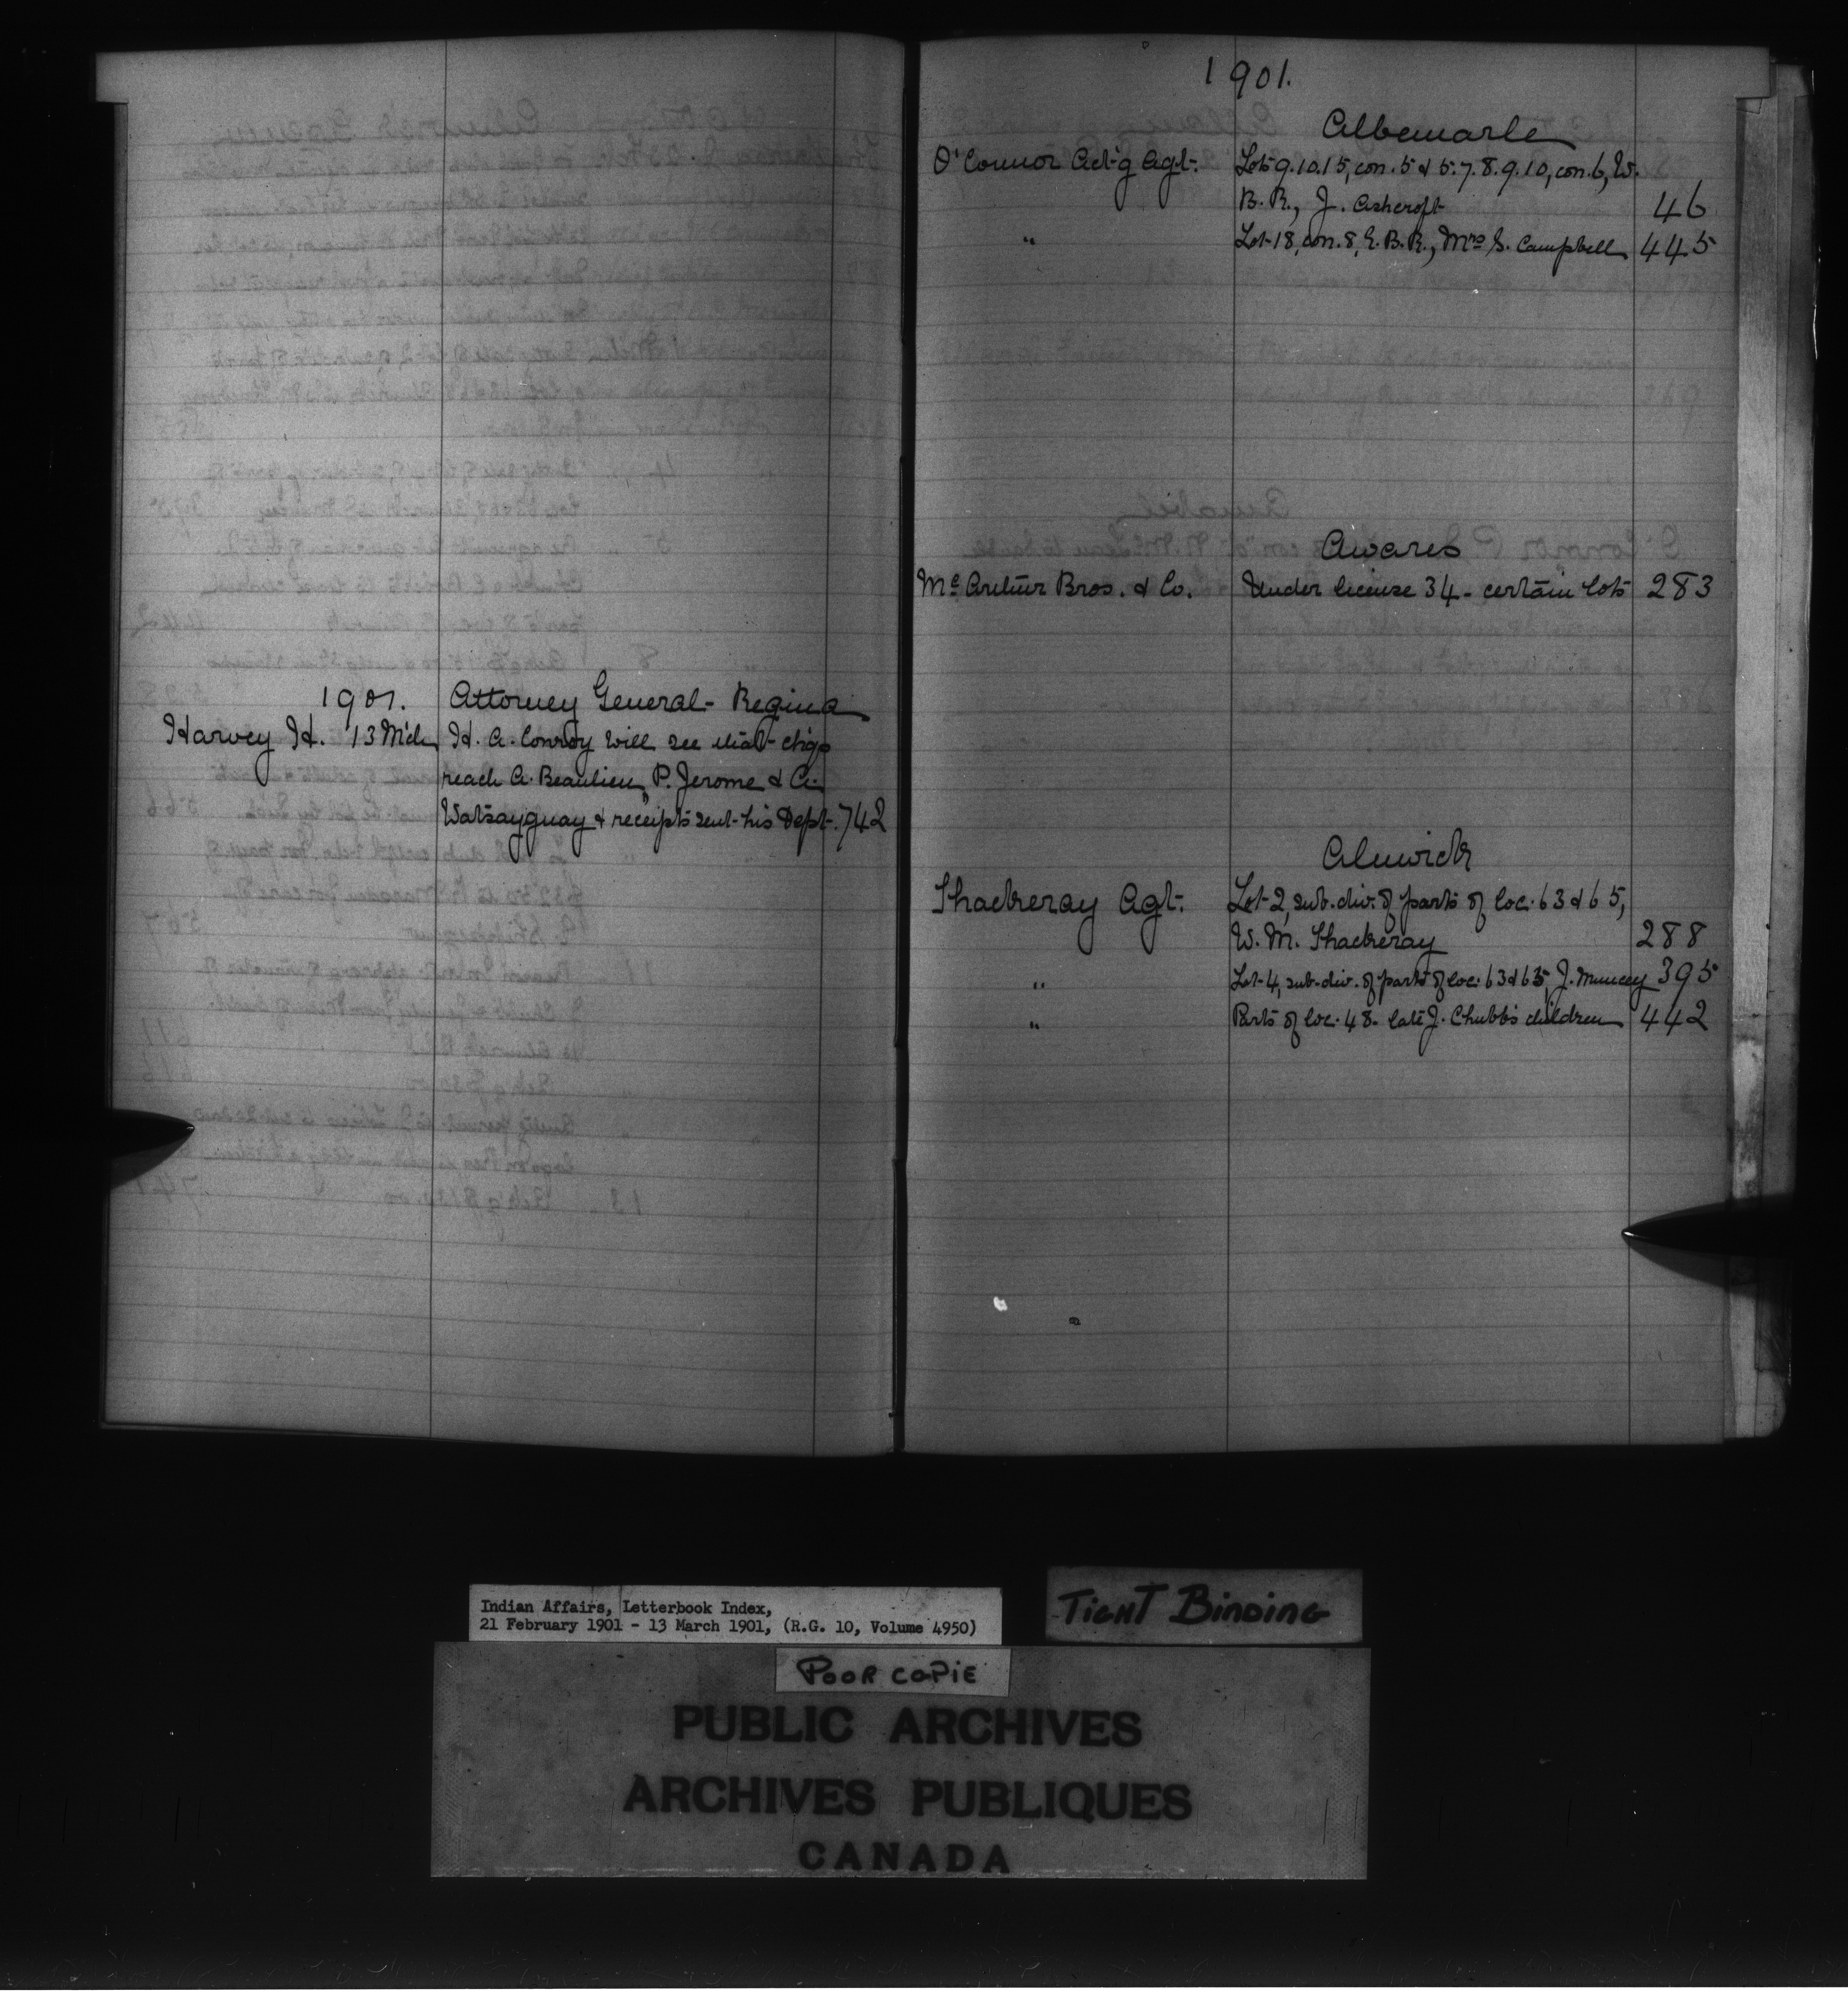 1901. Attorney General - Regina
Harvey H. 13 Mch H. A. Conroy will see that chqs
reach A. Beaulieu, P. Jerome & A.
Watsayguay & receipts sent his Dept. 742
1901.
Albemarle
O'Connor Act'g Agt. Lots 9.10.15, con. 5 & 5.7.8.9.10, con. 6, W.
B. R., J. Ashcroft 46
" Lot 18, con. 8, E. B. R., Mrs S. Campbell 445
Awares
Mc Arthur Bros. & Co. Under license 34 - certain lots 283
Alnwick
Thackeray Agt. Lot 2, sub. div. of parts of loc. 63 & 65,
W. M. Thackeray 288
" Lot 4, sub-div. of parts of loc. 63 & 65, J. Muncey 395
" Parts of loc. 48 - late J. Chubb's children 442
Indian Affairs, Letterbook Index,
21 February 1901 - 13 March 1901, (R.G. 10, Volume 4950)
TIGHT BINDING
POOR COPIE
PUBLIC ARCHIVES
ARCHIVES PUBLIQUES
CANADA